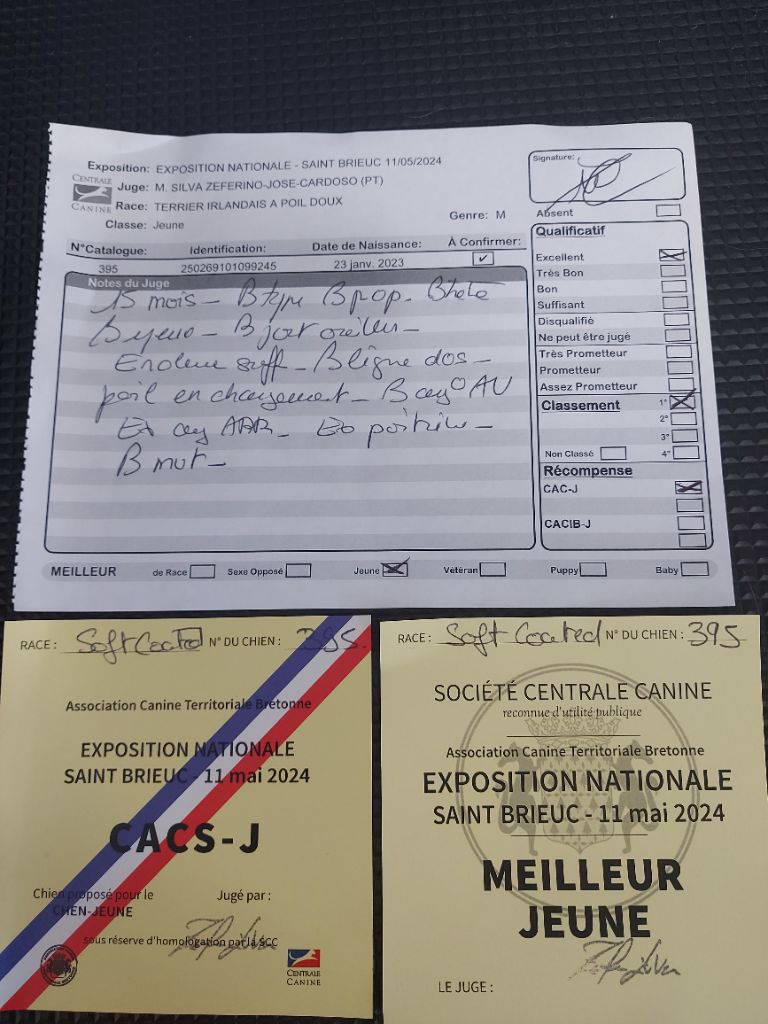 Exposition: EXPOSITION NATIONALE - SAINT BRIEUC 11/05/2024
CENTRALE CANINE
Juge: M. SILVA ZEFERINO-JOSE-CARDOSO (PT)
Race: TERRIER IRLANDAIS A POIL DOUX
Classe: Jeune
Genre: M
N°Catalogue: Identification: Date de Naissance: À Confirmer:
395 250269101099245 23 janv. 2023 ✓
Notes du Juge
15 mois - B type B prop. B tete
B yeux - B port oreilles -
Encolure suff - B ligne dos -
poil en changement - B ang° AV
Ex ang ARR - poitrine -
B mvt -
Signature:
Absent
Qualificatif
Excellent
Très Bon
Bon
Suffisant
Disqualifié
Ne peut être jugé
Très Prometteur
Prometteur
Assez Prometteur
Classement 1°
2°
3°
Non Classé 4°
Récompense
CAC-J
CACIB-J
MEILLEUR de Race Sexe Opposé Jeune Vétéran Puppy Baby
RACE : Soft Coated N° DU CHIEN : 395
Association Canine Territoriale Bretonne
EXPOSITION NATIONALE
SAINT BRIEUC - 11 mai 2024
CACS-J
Chien proposé pour le Jugé par :
CHEN-JEUNE
sous réserve d'homologation par la SCC
CENTRALE
CANINE
RACE : Soft Coated N° DU CHIEN : 395
SOCIÉTÉ CENTRALE CANINE
reconnue d'utilité publique
Association Canine Territoriale Bretonne
EXPOSITION NATIONALE
SAINT BRIEUC - 11 mai 2024
MEILLEUR
JEUNE
LE JUGE :